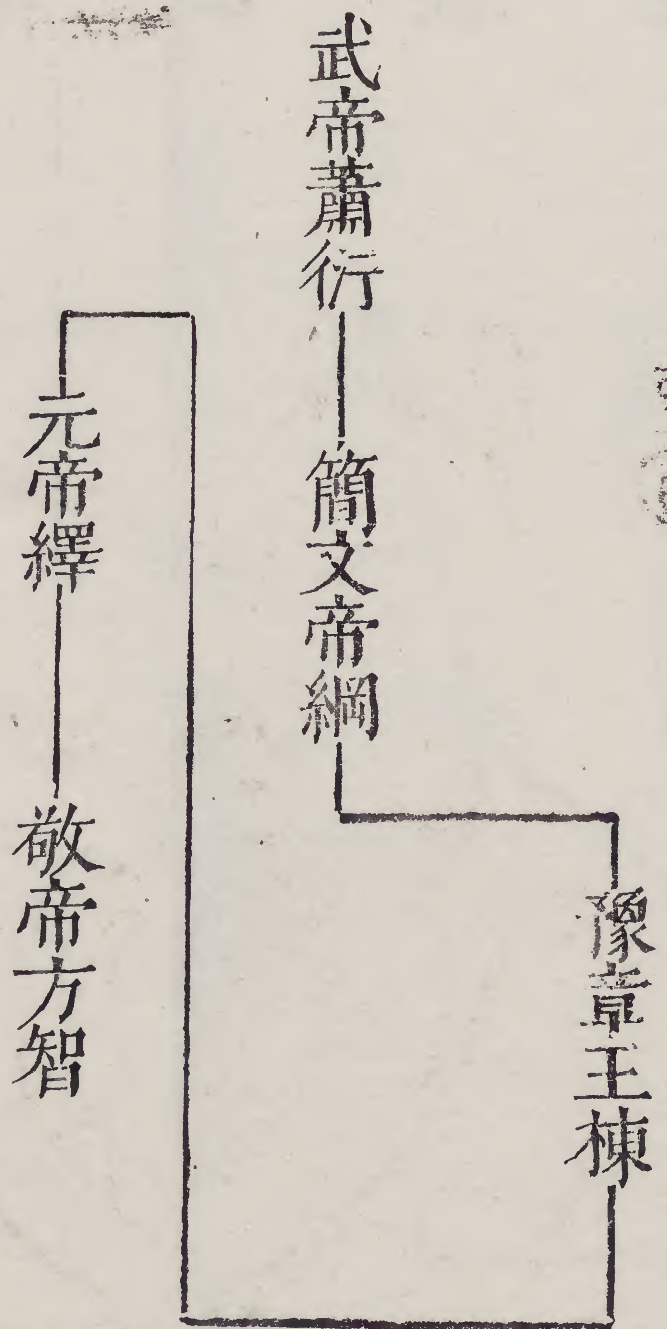 武帝蕭衍
簡文帝綱
豫章王棟
元帝繹
敬帝方智